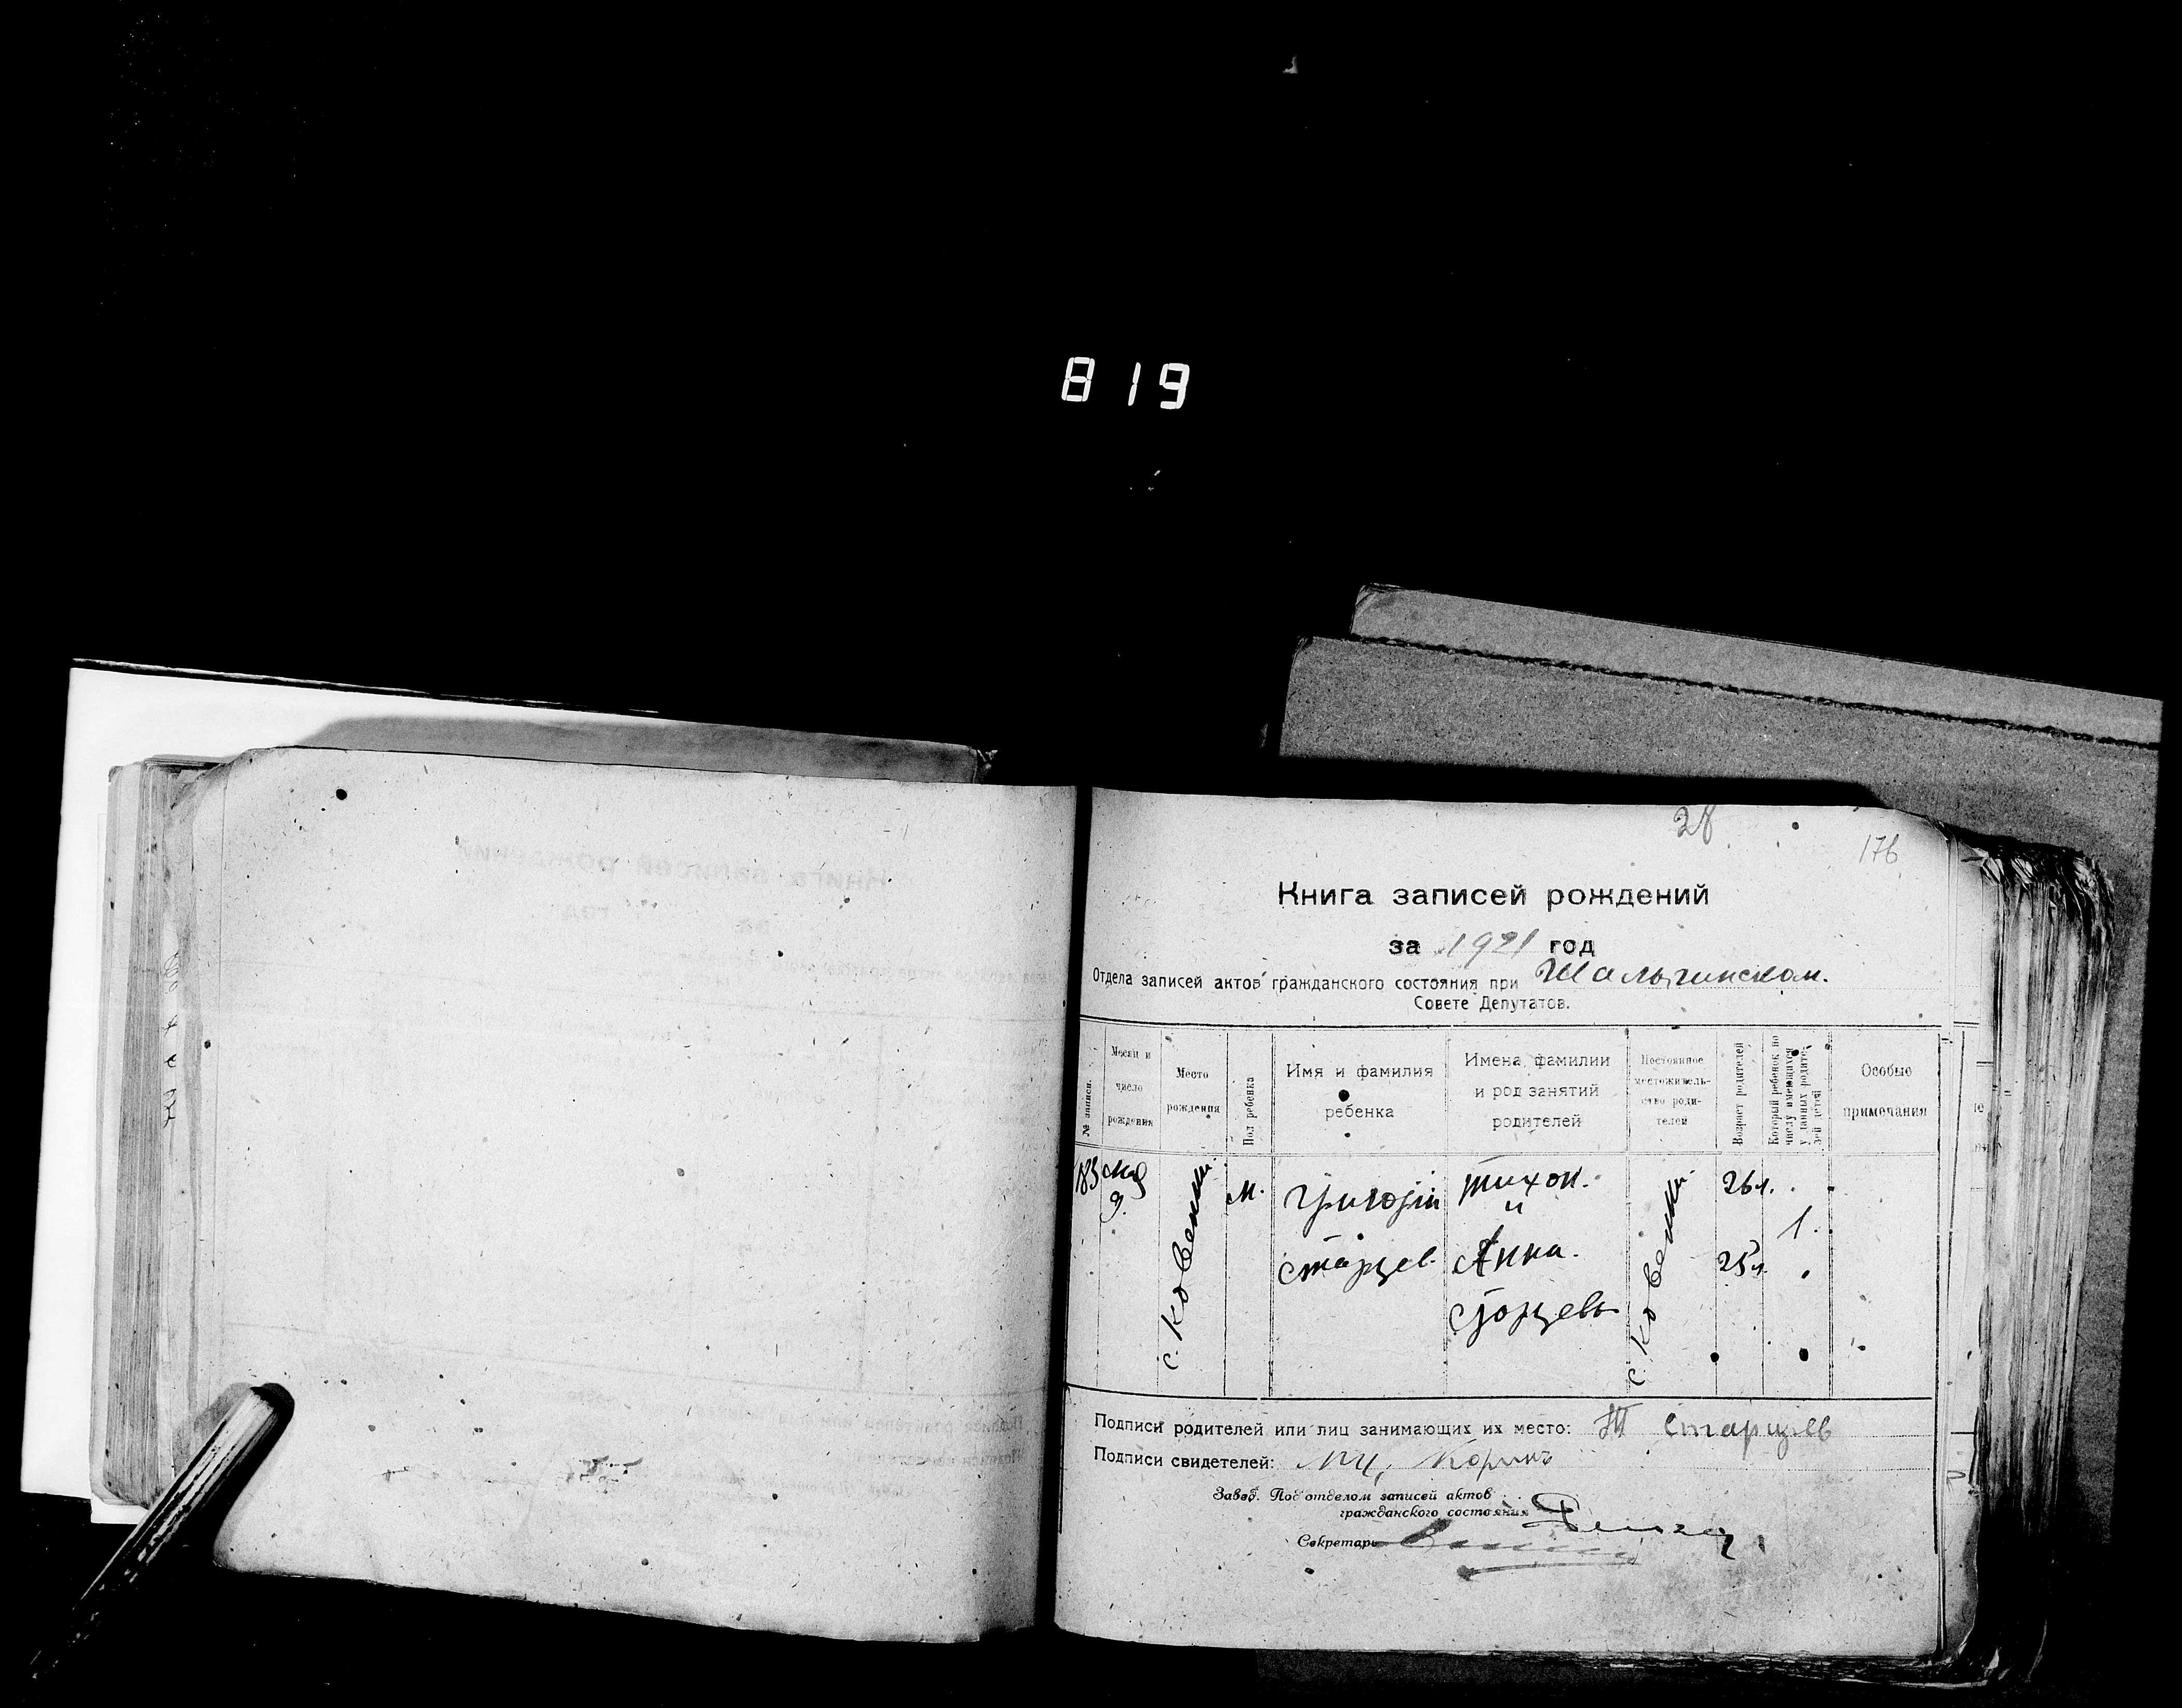 819
28
176
Книга записей рождений
за 1921 год
Отдела записей актов гражданского состояния при Шалыгинском.
Совете Депутатов.
№ записи.
Месяц и число рождения
Место рождения
Пол ребенка
Имя и фамилия ребенка
Имена, фамилии и род занятий родителей
Постоянное местожительство родителей
Возраст родителей
Который ребенок по числу имеющихся у данных родителей детей
Особые примечания
183
9.
с. Ковенки.
м.
Григорій
Старцев.
Тихон.
и
Анна.
Старцевы
с. Ковенки.
26 л.
25 л.
1.
Подписи родителей или лиц занимающих их место: Т Старцев
Подписи свидетелей: Коринъ
Завед. Подотделом записей актов
гражданского состояния
Секретарь